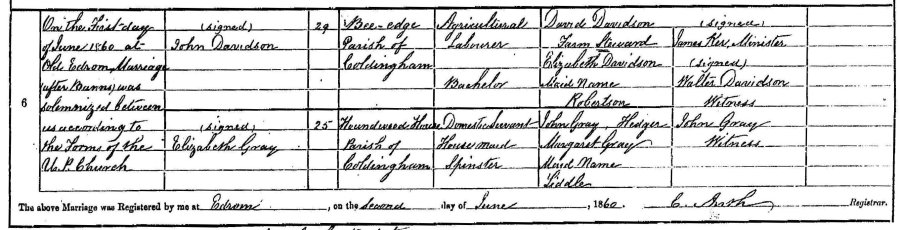 6
On the First day
of June 1860 at
Old Edrom, Marriage
(after Banns) was
solemnized between
us according to
the Forms of the
U.P. Church
(signed)
John Davidson
(signed)
Elizabeth Gray
29
25
Bee-edge
Parish of
Coldingham
Houndwood House
Parish of
Coldingham
Agricultural
Labourer
Bachelor
Domestic Servant
House maid
Spinster
David Davidson
Farm Steward
Elizabeth Davidson
Maid Name
Robertson
John Gray, Hedger
Margaret Gray
Maid Name
Liddle
(signed)
James Ker, Minister
(signed)
Walter Davidson
Witness
John Gray
Witness
The above Marriage was Registered by me at Edrom, on the second day of June, 1860. C. Registrar.